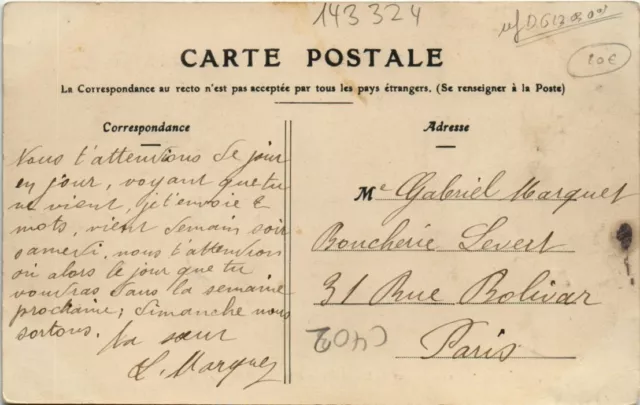 143324
20€
CARTE POSTALE
La Correspondance au recto n'est pas acceptée par tous les pays étrangers. (Se renseigner à la Poste)
Correspondance
Nous t'attendions de jour
en jour, voyant que tu
ne vient, je t'envoie 2
mots, vient demain soir
samedi, nous t'attendrons
ou alors le jour que tu
voudras dans la semaine
prochaine; dimanche nous
sortons.
ta sœur
L. Marquet
Adresse
Me Gabriel Marquet
Boucherie Levert
31 Rue Bolivar
Paris
C402